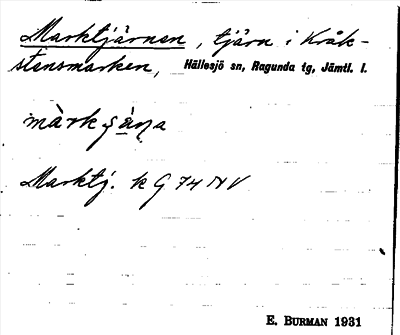 Marktjärnen, tjärn i Kråk-
stensmarken, Hällesjö sn, Ragunda tg, Jämtl. l.
Marktj. k G 74 N V
E. BURMAN 1931